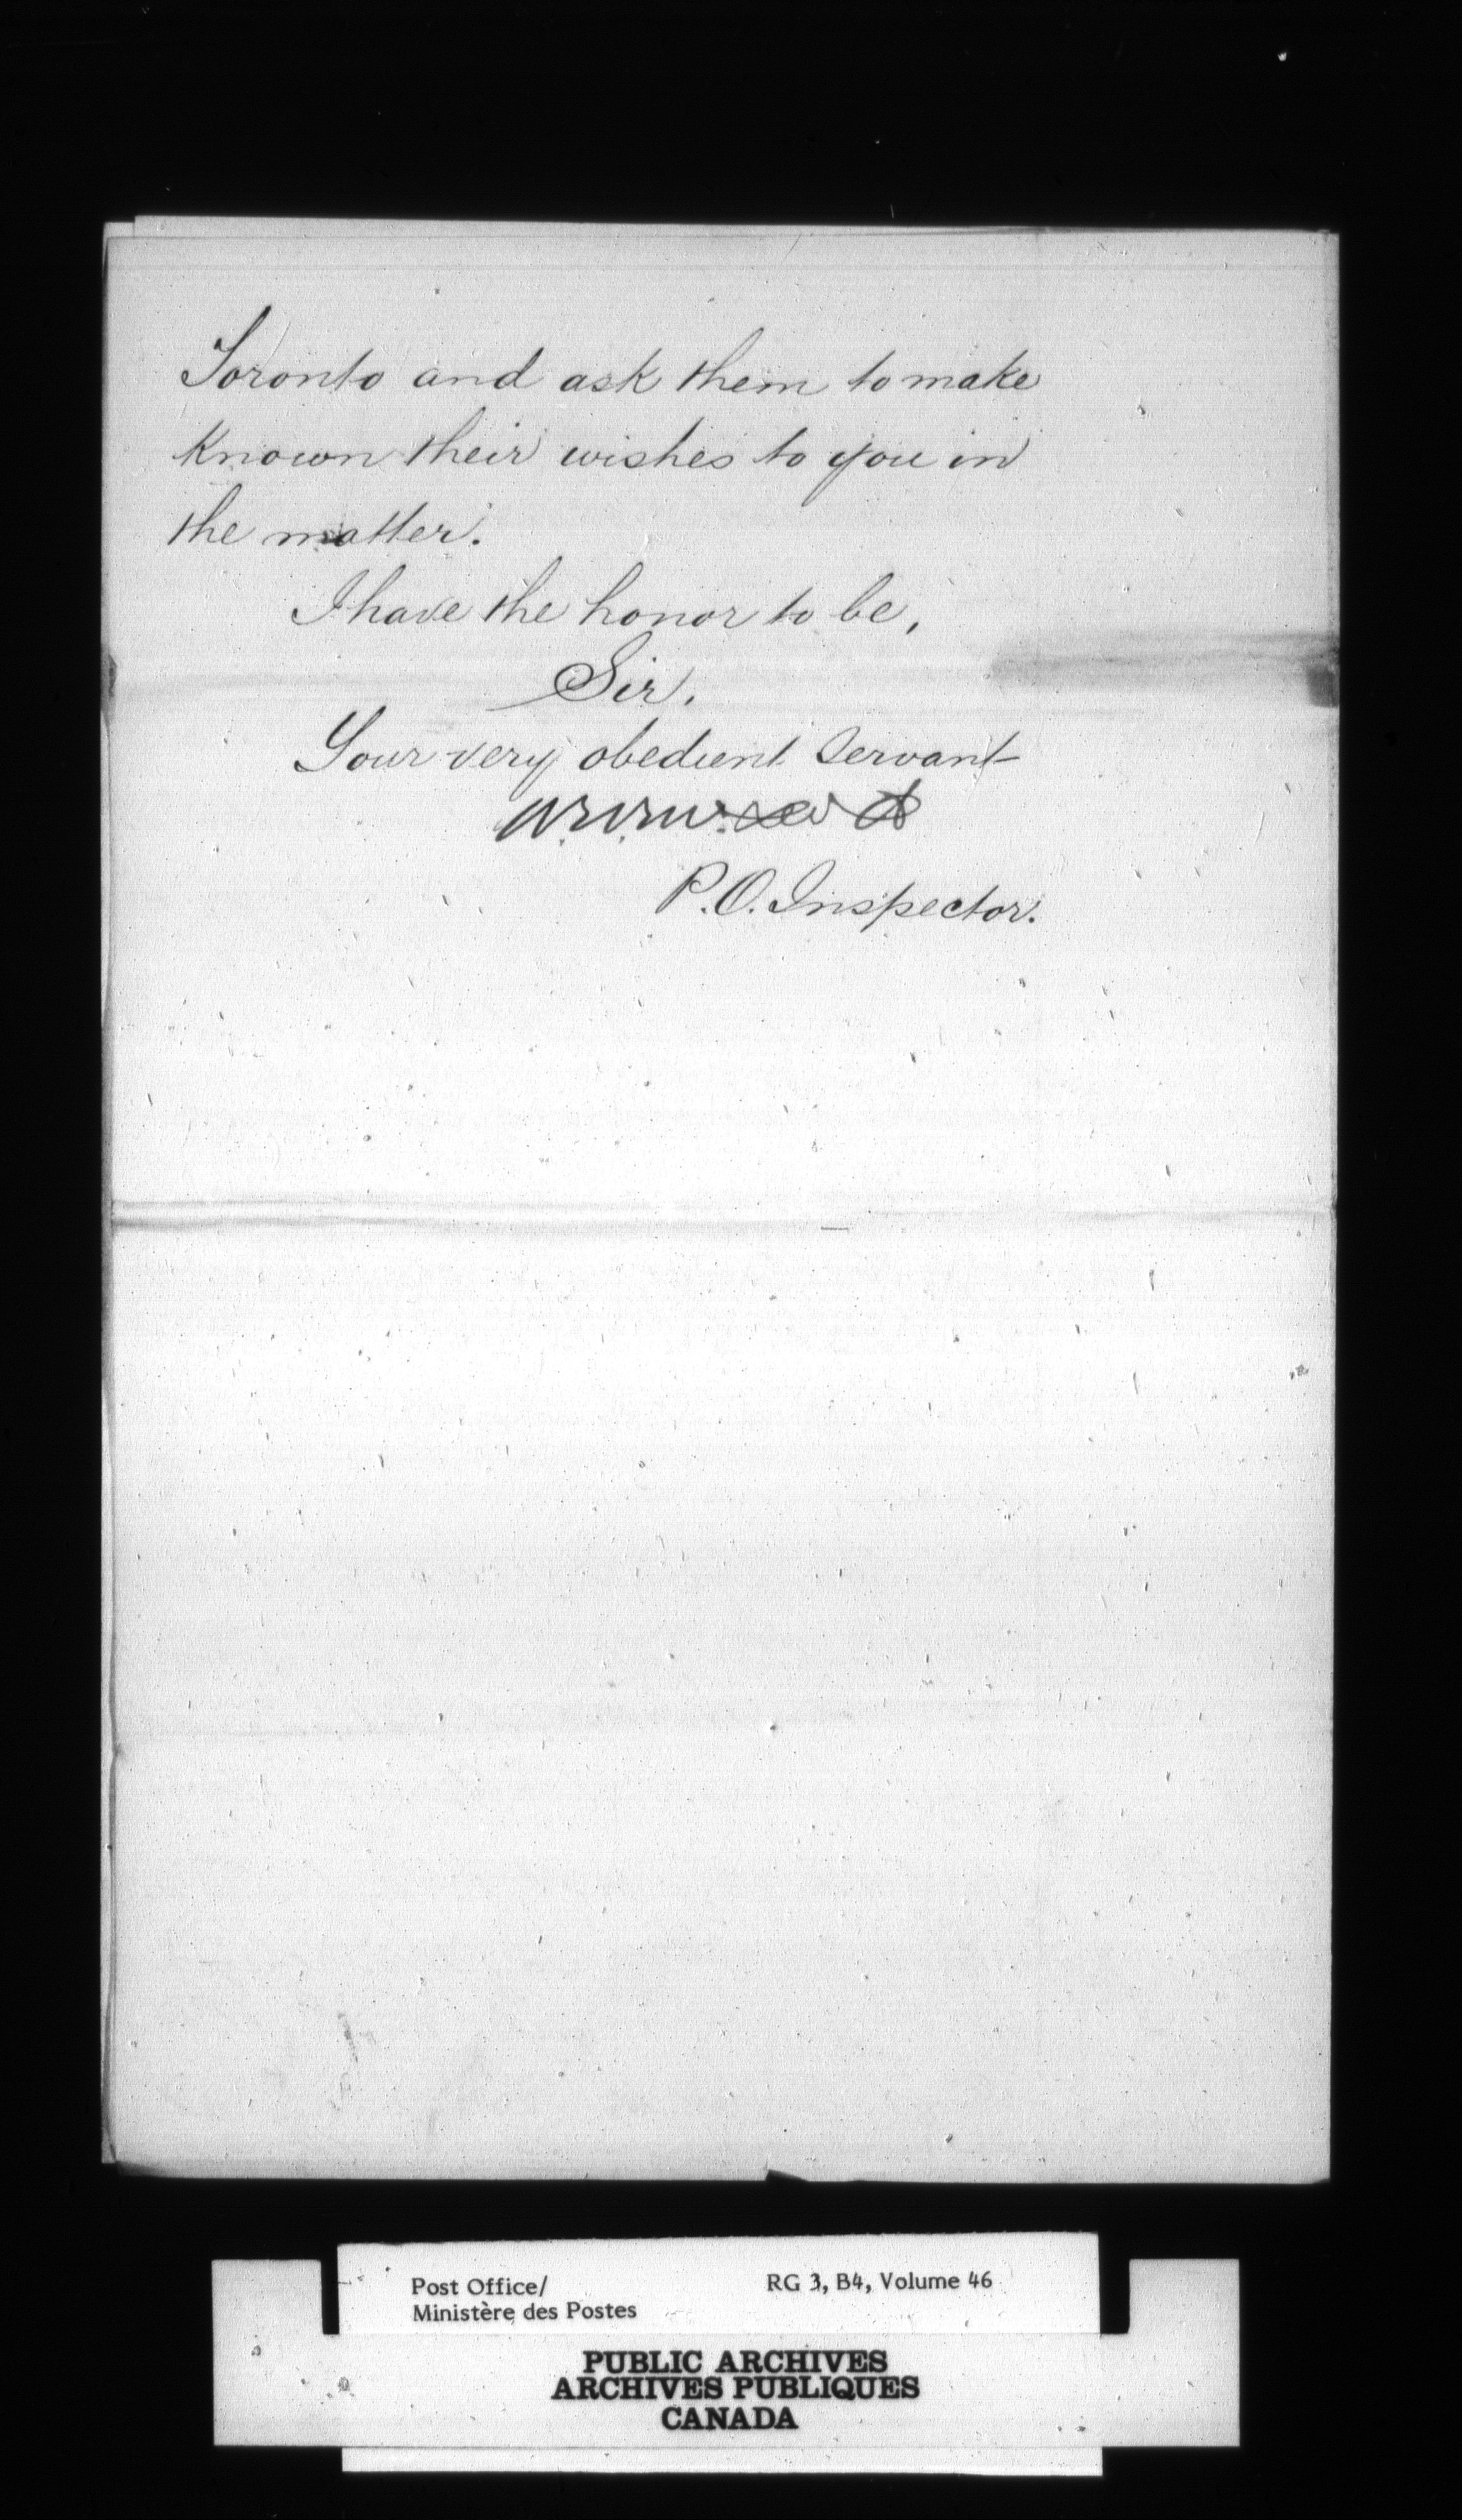 Toronto and ask them to make
known their wishes to you in
the matter.
I have the honor to be,
Sir,
Your very obedient Servant
P.O. Inspector.
Post Office/
Ministère des Postes
RG 3, B4, Volume 46
PUBLIC ARCHIVES
ARCHIVES PUBLIQUES
CANADA